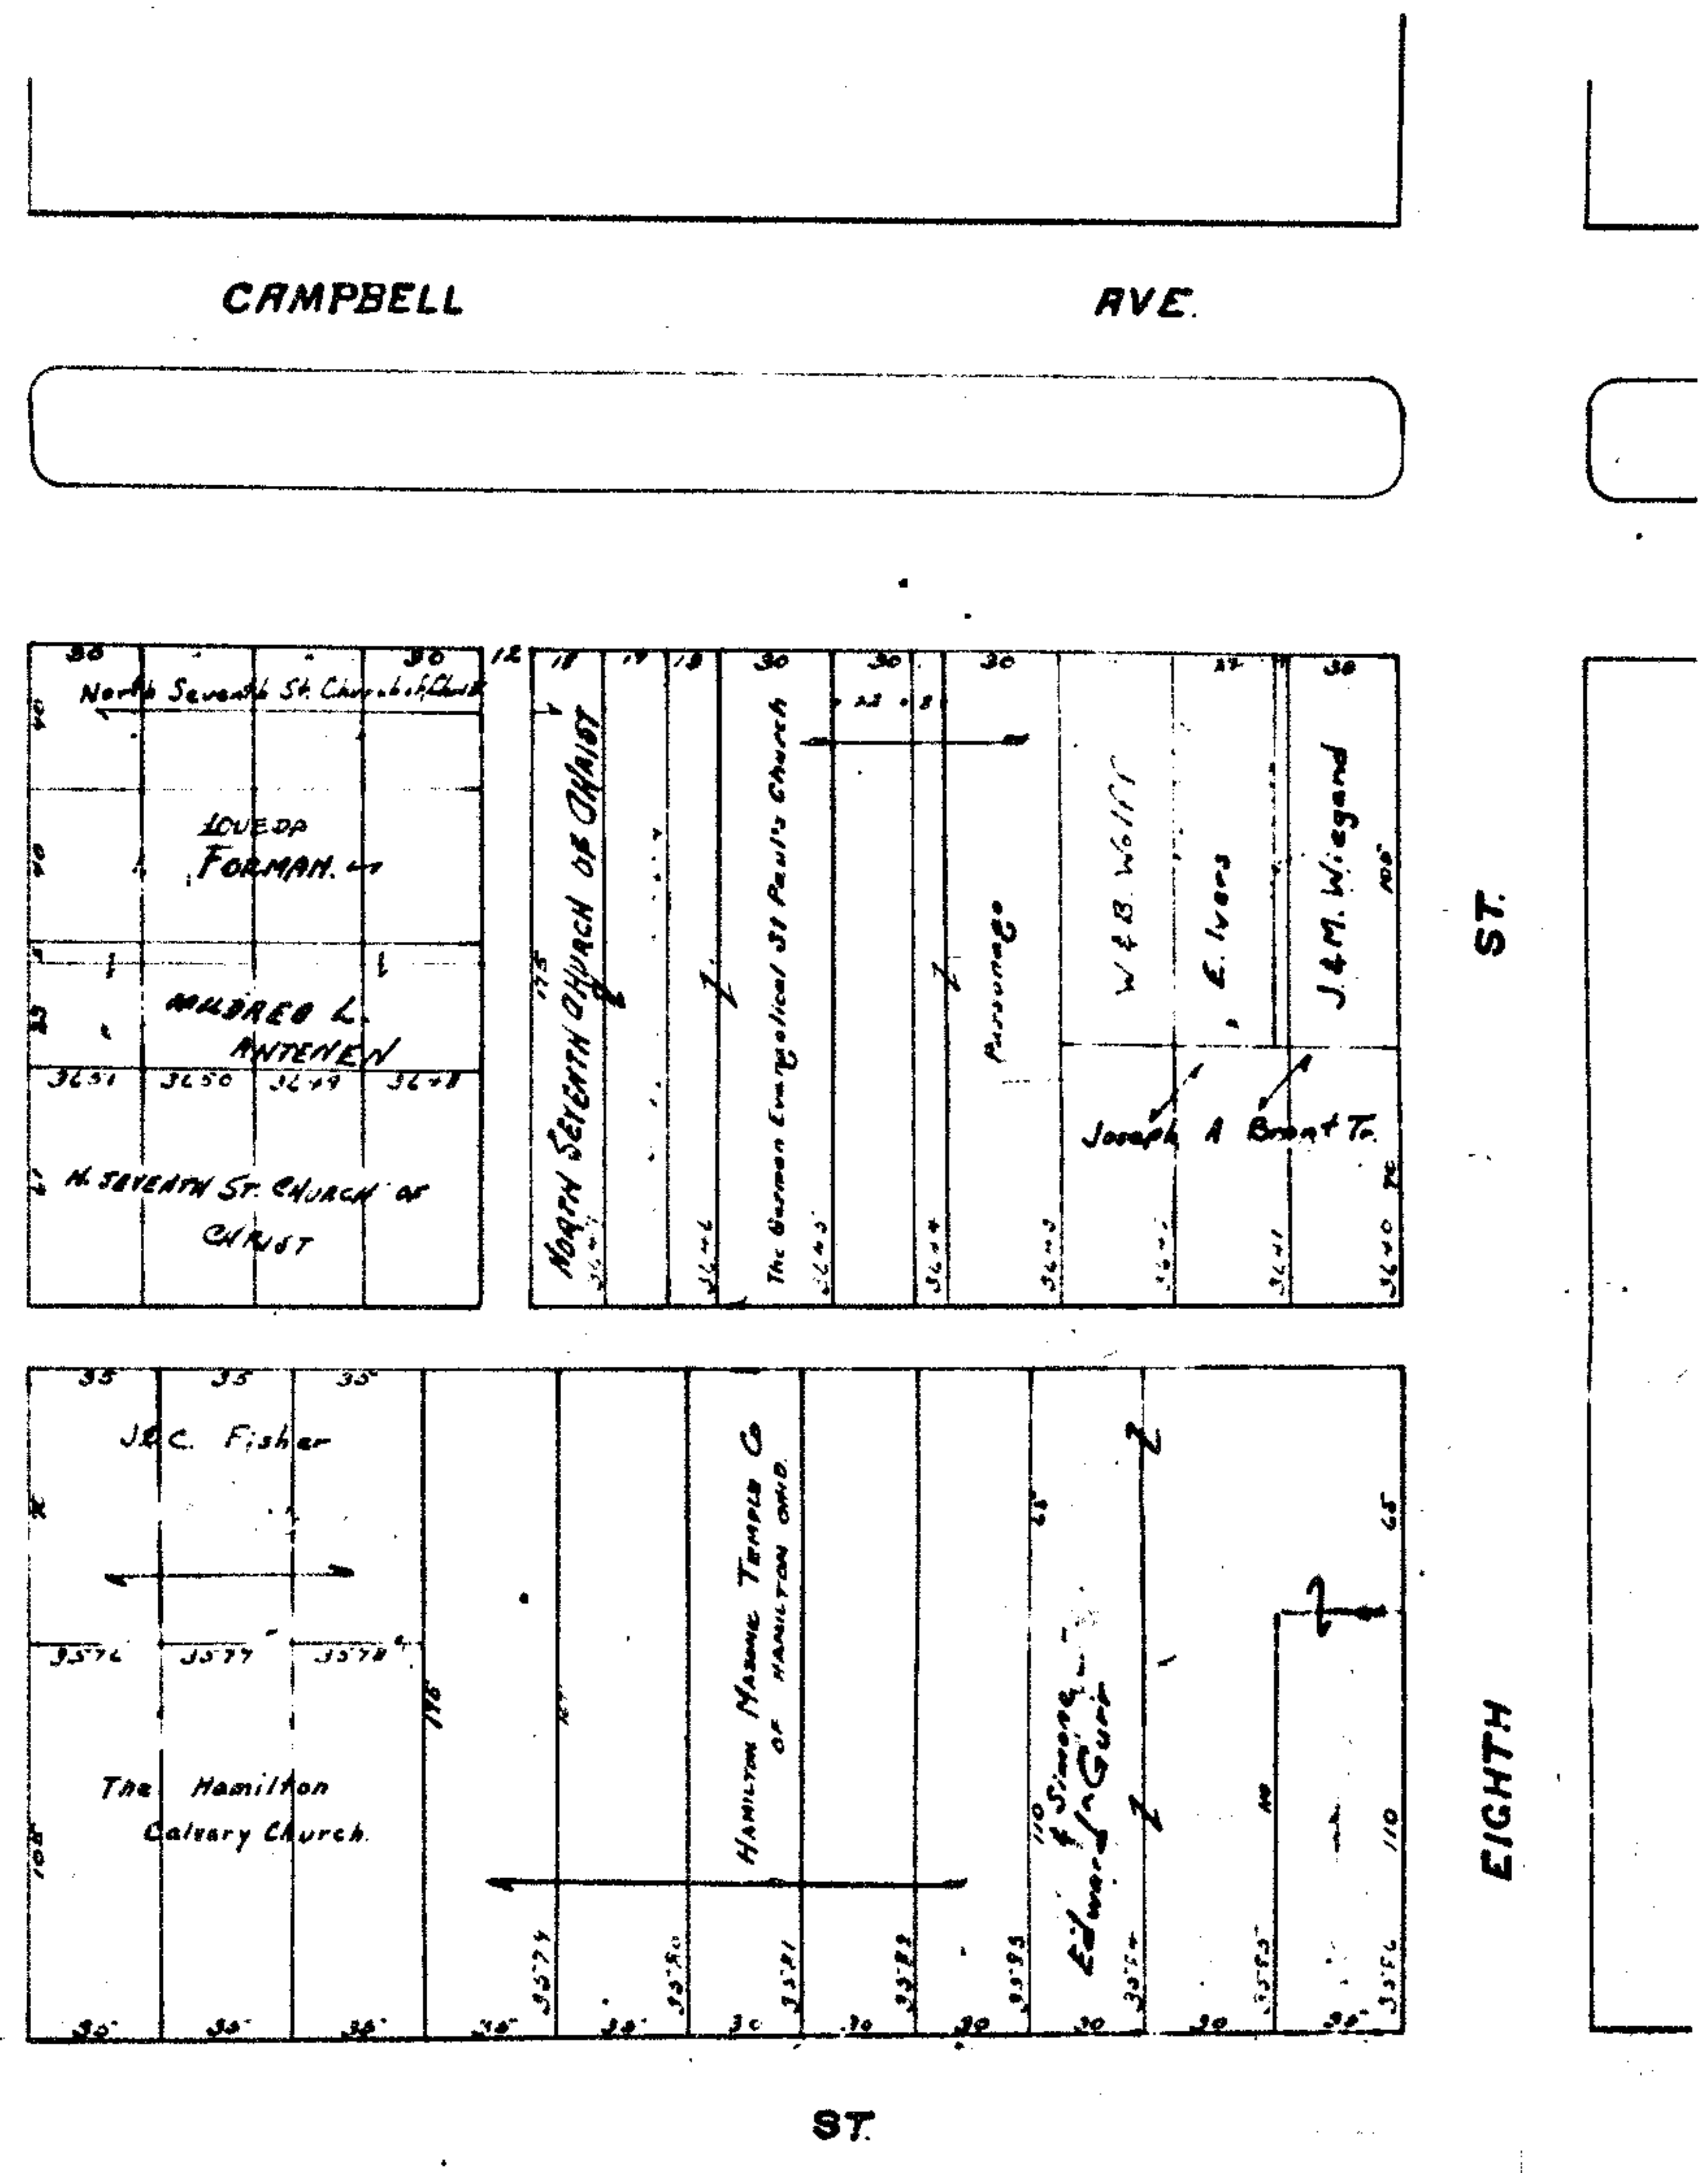 CAMPBELL AVE.
30 30 12 18 19 13 30 30 30 27 30
North Seventh St. Church of Christ
40
22 8
LOUEDA
FORMAN.
40
MILDRED L.
ANTENEN
3651 3650 3649 3648
N. SEVENTH ST. CHURCH OF
CHRIST
NORTH SEVENTH CHURCH OF CHRIST
175
3646
The German Evangelical St Paul's Church
3645
3644
Parsonage
3643
W & B. Wolff
E. Ivers
J. & M. Wiegand
105
Joseph A Brant Tr.
70
3641
3640
ST.
35 35 35
J & C. Fisher
70
3576 3577 3578
175
The Hamilton
Calvary Church.
105
HAMILTON MASONIC TEMPLE Co
OF HAMILTON OHIO.
65
65
110
& Simona
Edward Gurr
110
110
3579
3580
3581
3582
3583
3584
3585
3586
35 35 35 35 35 30 30 30 30 30 35
EIGHTH
ST.